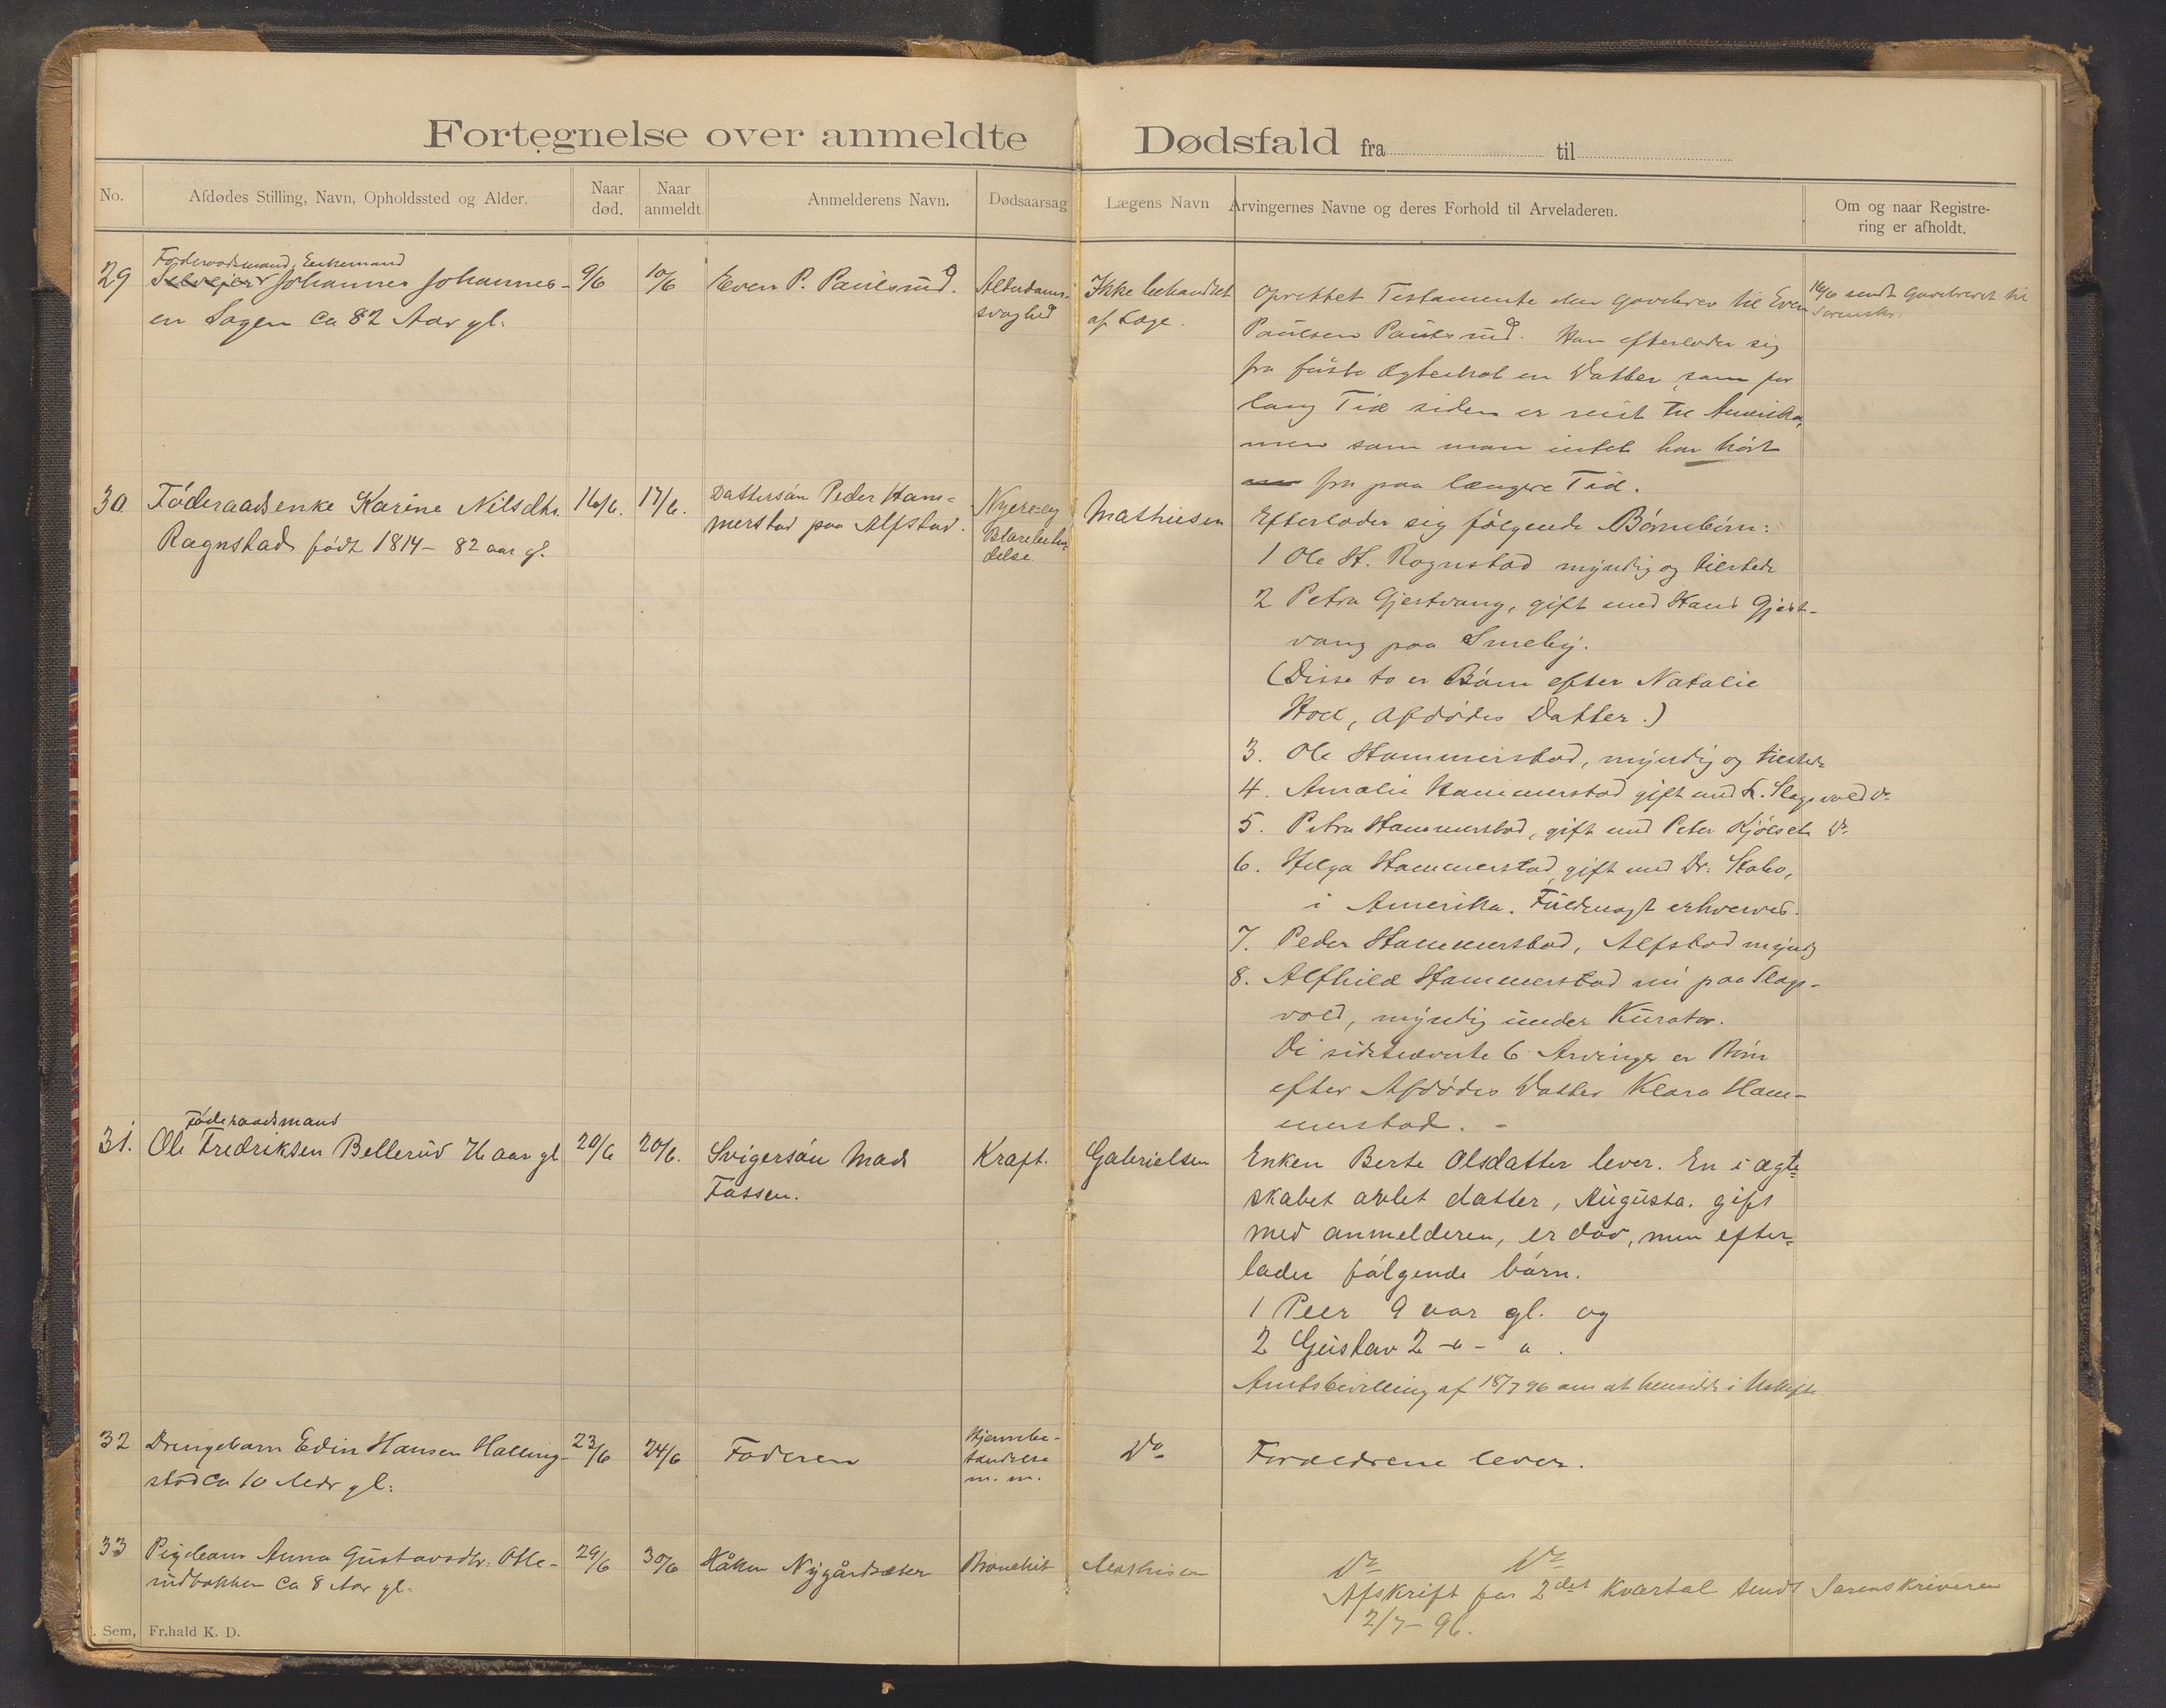 Fortegnelse over anmeldte Dødsfald fra til
No.
Afdødes Stilling, Navn, Opholdssted og Alder.
Naar død.
Naar anmeldt
Anmelderens Navn.
Dødsaarsag
Lægens Navn
Arvingernes Navne og deres Forhold til Arveladeren.
Om og naar Registre-
ring er afholdt.
Føderaadsmand, Enkemand
29 Selveier Johannes Johannes- 9/6 10/6 Even P. Paulsrud. Alderdoms- Ikke behandlet
en Sagen ca 82 Aar gl. svaghed af Læge.
Oprettet Testamente eller Gavebrev til Even
Paulsen Paulsrud. Han efterlader sig
fra første Ægteskab en Datter, som for
lang Tid siden er reist til Amerika,
men som man intet har hørt
fra paa længere Tid.
16/6 sendt Gavebrevet til
Sorenskr.
30 Føderaadsenke Karine Nilsdtr. 16/6. 17/6. Dattersøn Peder Ham-
Ragnstad født 1814 - 82 aar gl. merstad paa Alfstad.
Nyere- og
Blærebetæn
delse.
Mathiesen
Efterlader sig følgende Børnebørn:
1 Ole H. Rognstad myndig og tilstede
2 Petra Gjestvang, gift med Hans Gjest-
vang paa Smeby.
(Disse to er Børn efter Natalie
Hoel, Afdødes Datter.)
3. Ole Hammerstad, myndig og tilstede
4. Amalie Hammerstad gift med L. Slagsvold Do
5. Petra Hammerstad, gift med Peter Kjølset Do
6. Helga Hammerstad, gift med Dr. Stabo,
i Amerika. Fuldmagt erhverves.
7. Peder Hammerstad, Alfstad myndig
8. Alfhild Hammerstad nu paa Slags-
vold, myndig under Kurator.
De sidstnævnte 6 Arvinger er Børn
efter Afdødes Datter Klara Ham-
merstad. -
Føderaadsmand
31. Ole Fredriksen Bellerud 76 aar gl 20/6 20/6. Svigersøn Mads Kræft. Gabrielsen
Fossen.
Enken Berte Olsdatter lever. En i ægte-
skabet avlet datter, Augusta. gift
med anmelderen, er død, men efter-
lader følgende børn.
1 Peer 9 aar gl. og
2 Gustav 2 -"- " .
Amtsbevilling af 18/7 96 om at hensidde i Uskifte.
32 Drengebarn Edin Hansen Halling- 23/6 24/6 Faderen Hjernebe- Do Forældrene lever.
stad ca 10 Mdr gl. tændelse
m. m.
33 Pigebarn Anna Gustavsdtr. Olle- 29/6 30/6 Håken Nygårdsæter Bronchit Mathisen Do Do
rudbakken ca 8 Aar gl.
Afskrift for 2det Kvartal sendt Sorenskriveren
2/7 - 96.
. Sem, Fr.hald K. D.